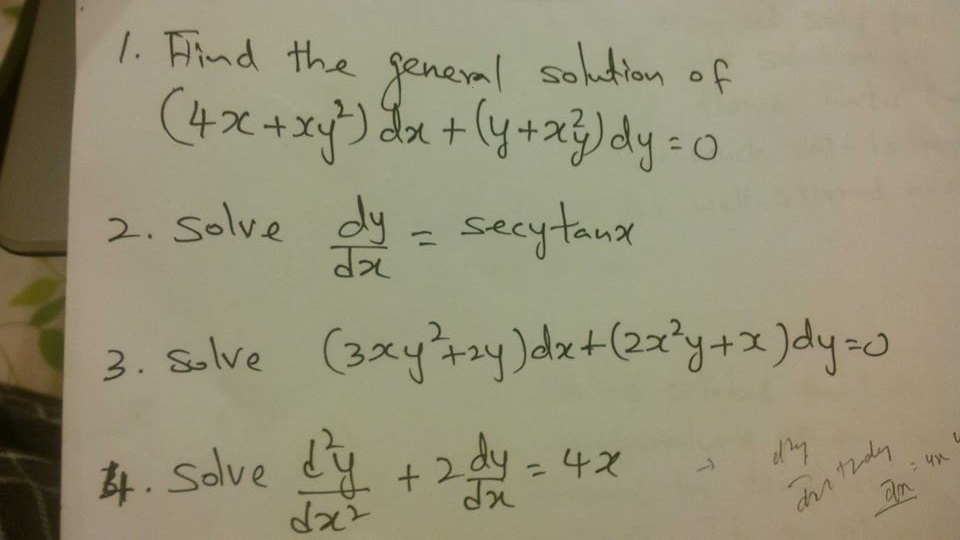 1. Find the general solution of
(4x+xy²)dx+(y+x²y)dy=0
2. Solve dy/dx = secytanx
3. Solve (3xy²+2y)dx+(2x²y+x)dy=0
4. Solve d²y/dx² + 2 dy/dx = 4x